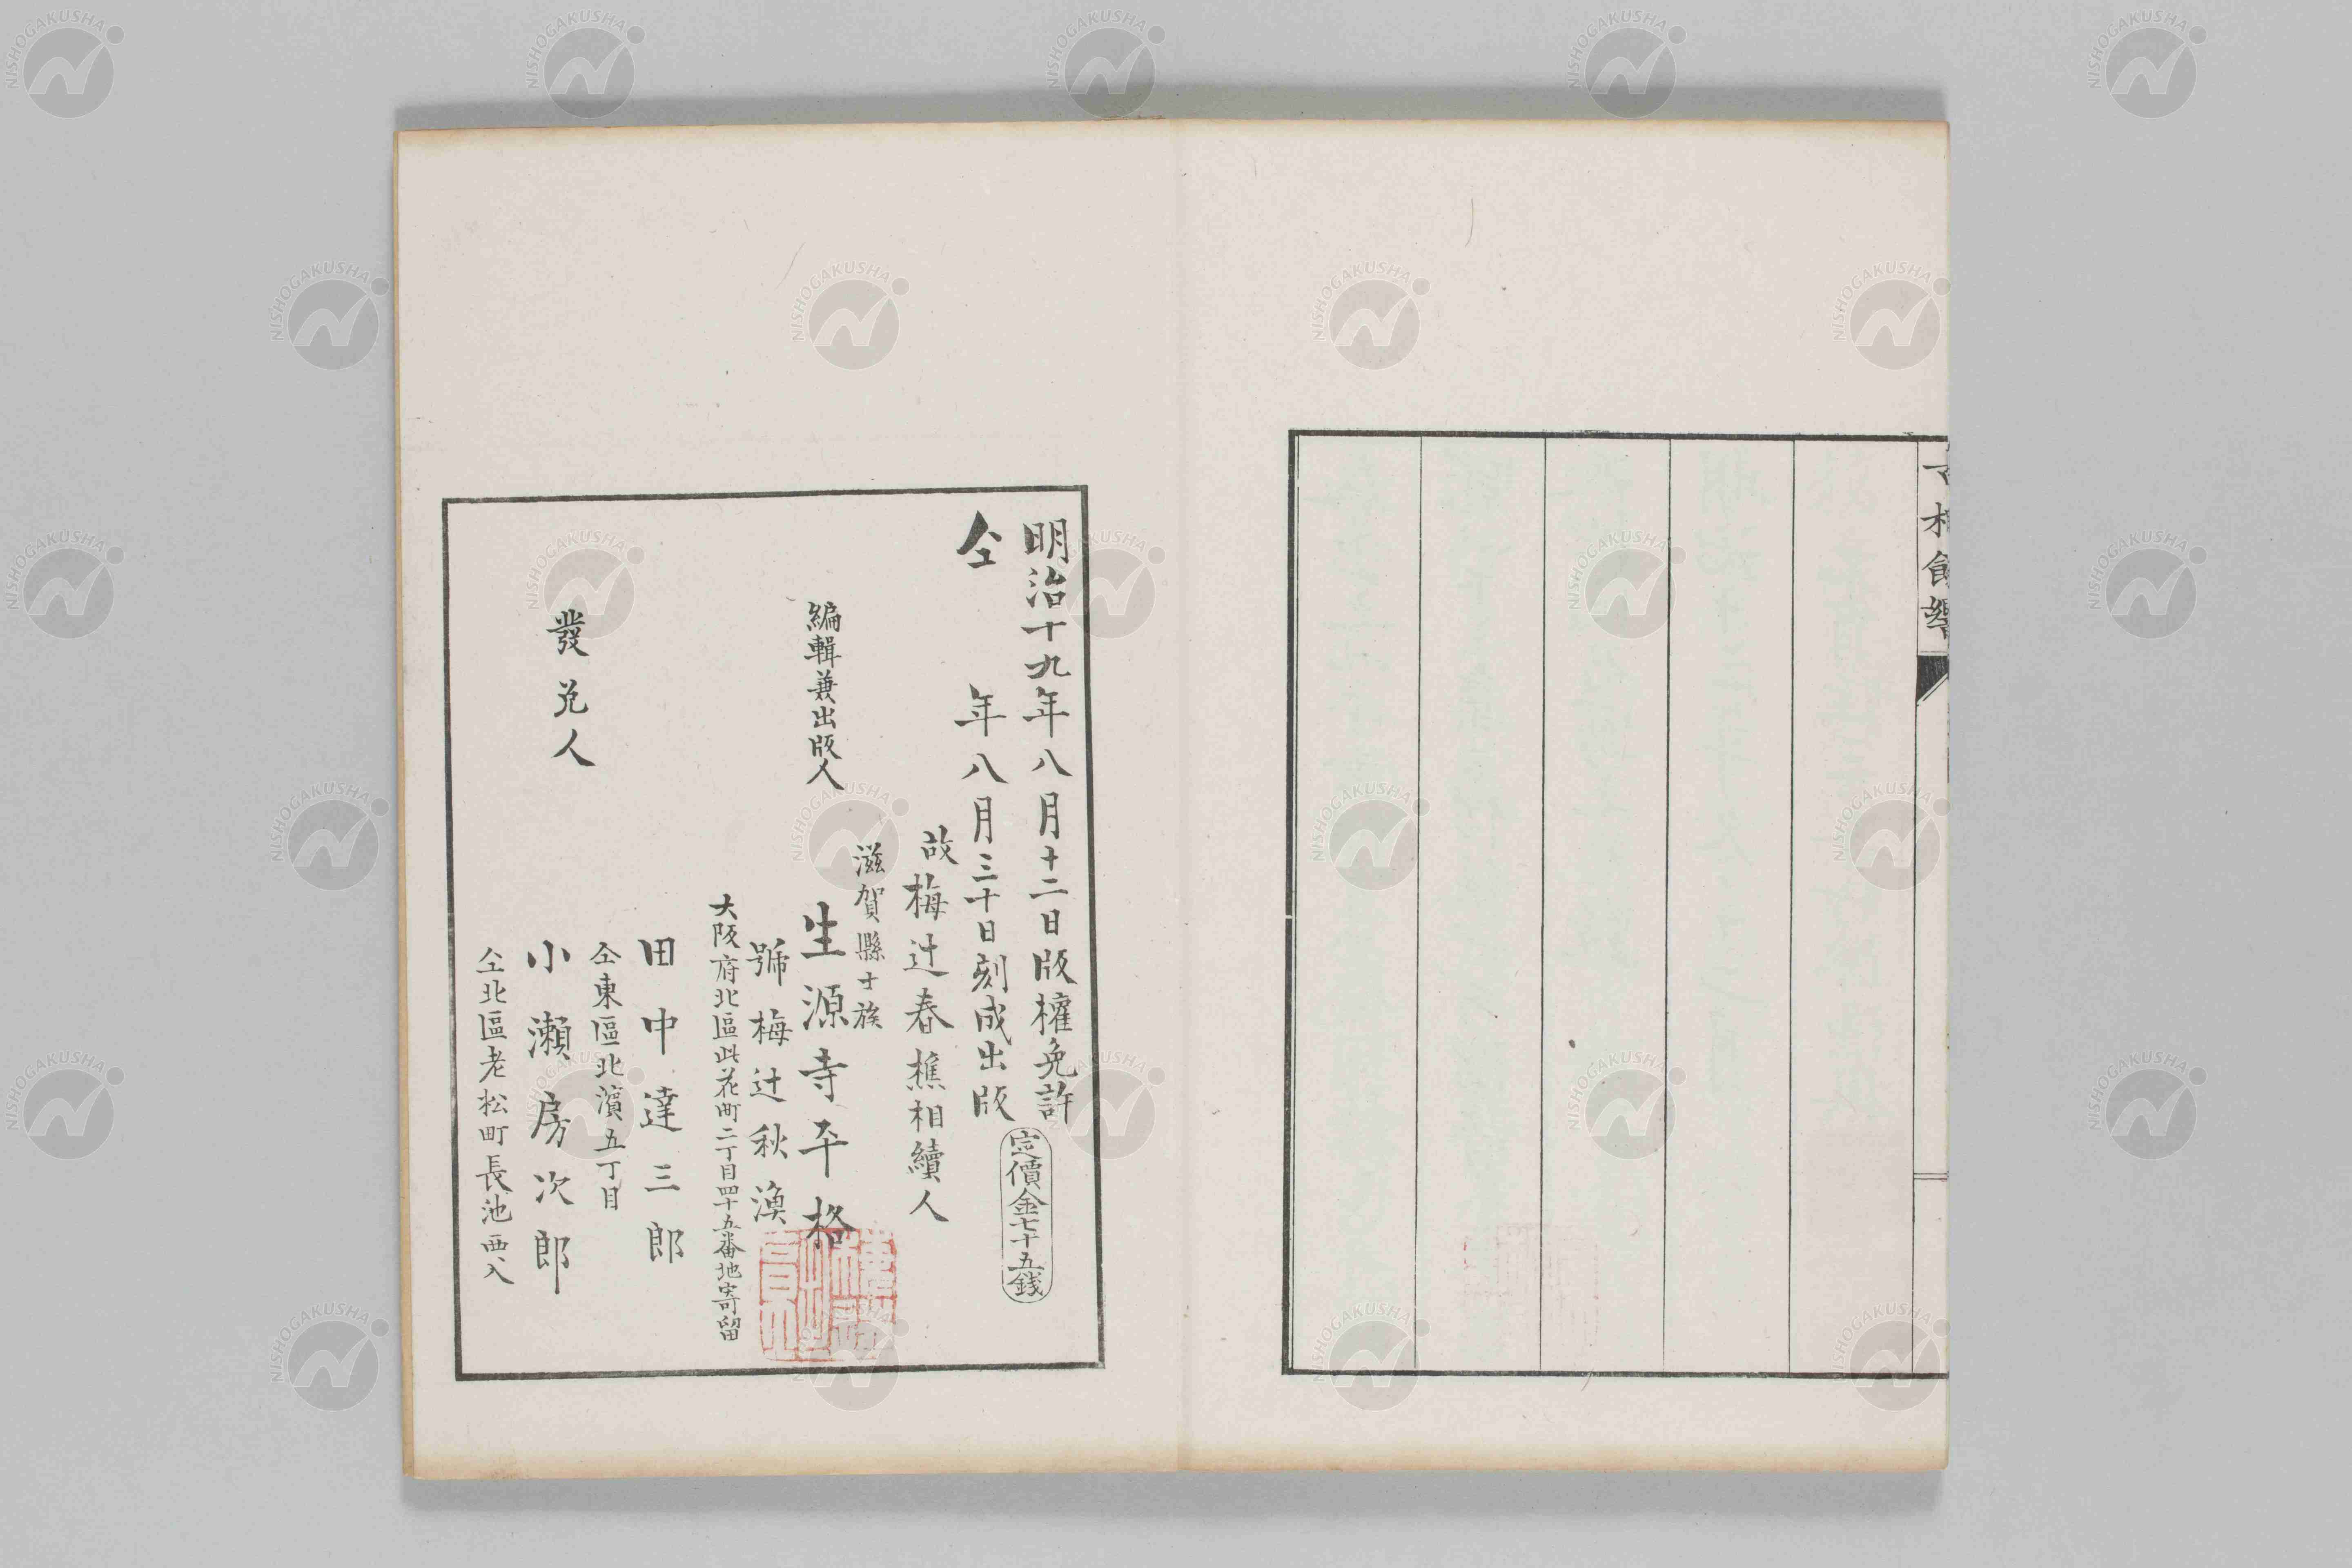 明治十九年八月十二日版權免許
仝年八月三十日刻成出版
定價金七十五錢
故梅辻春樵相續人
滋賀縣士族
編輯兼出版人
生源寺平格
號梅辻秋漁
大阪府北區此花町二丁目四十五番地寄留
發兌人
田中達三郎
仝東區北濱五丁目
小瀬房次郎
仝北區老松町長池西入
NISHOGAKUSHA